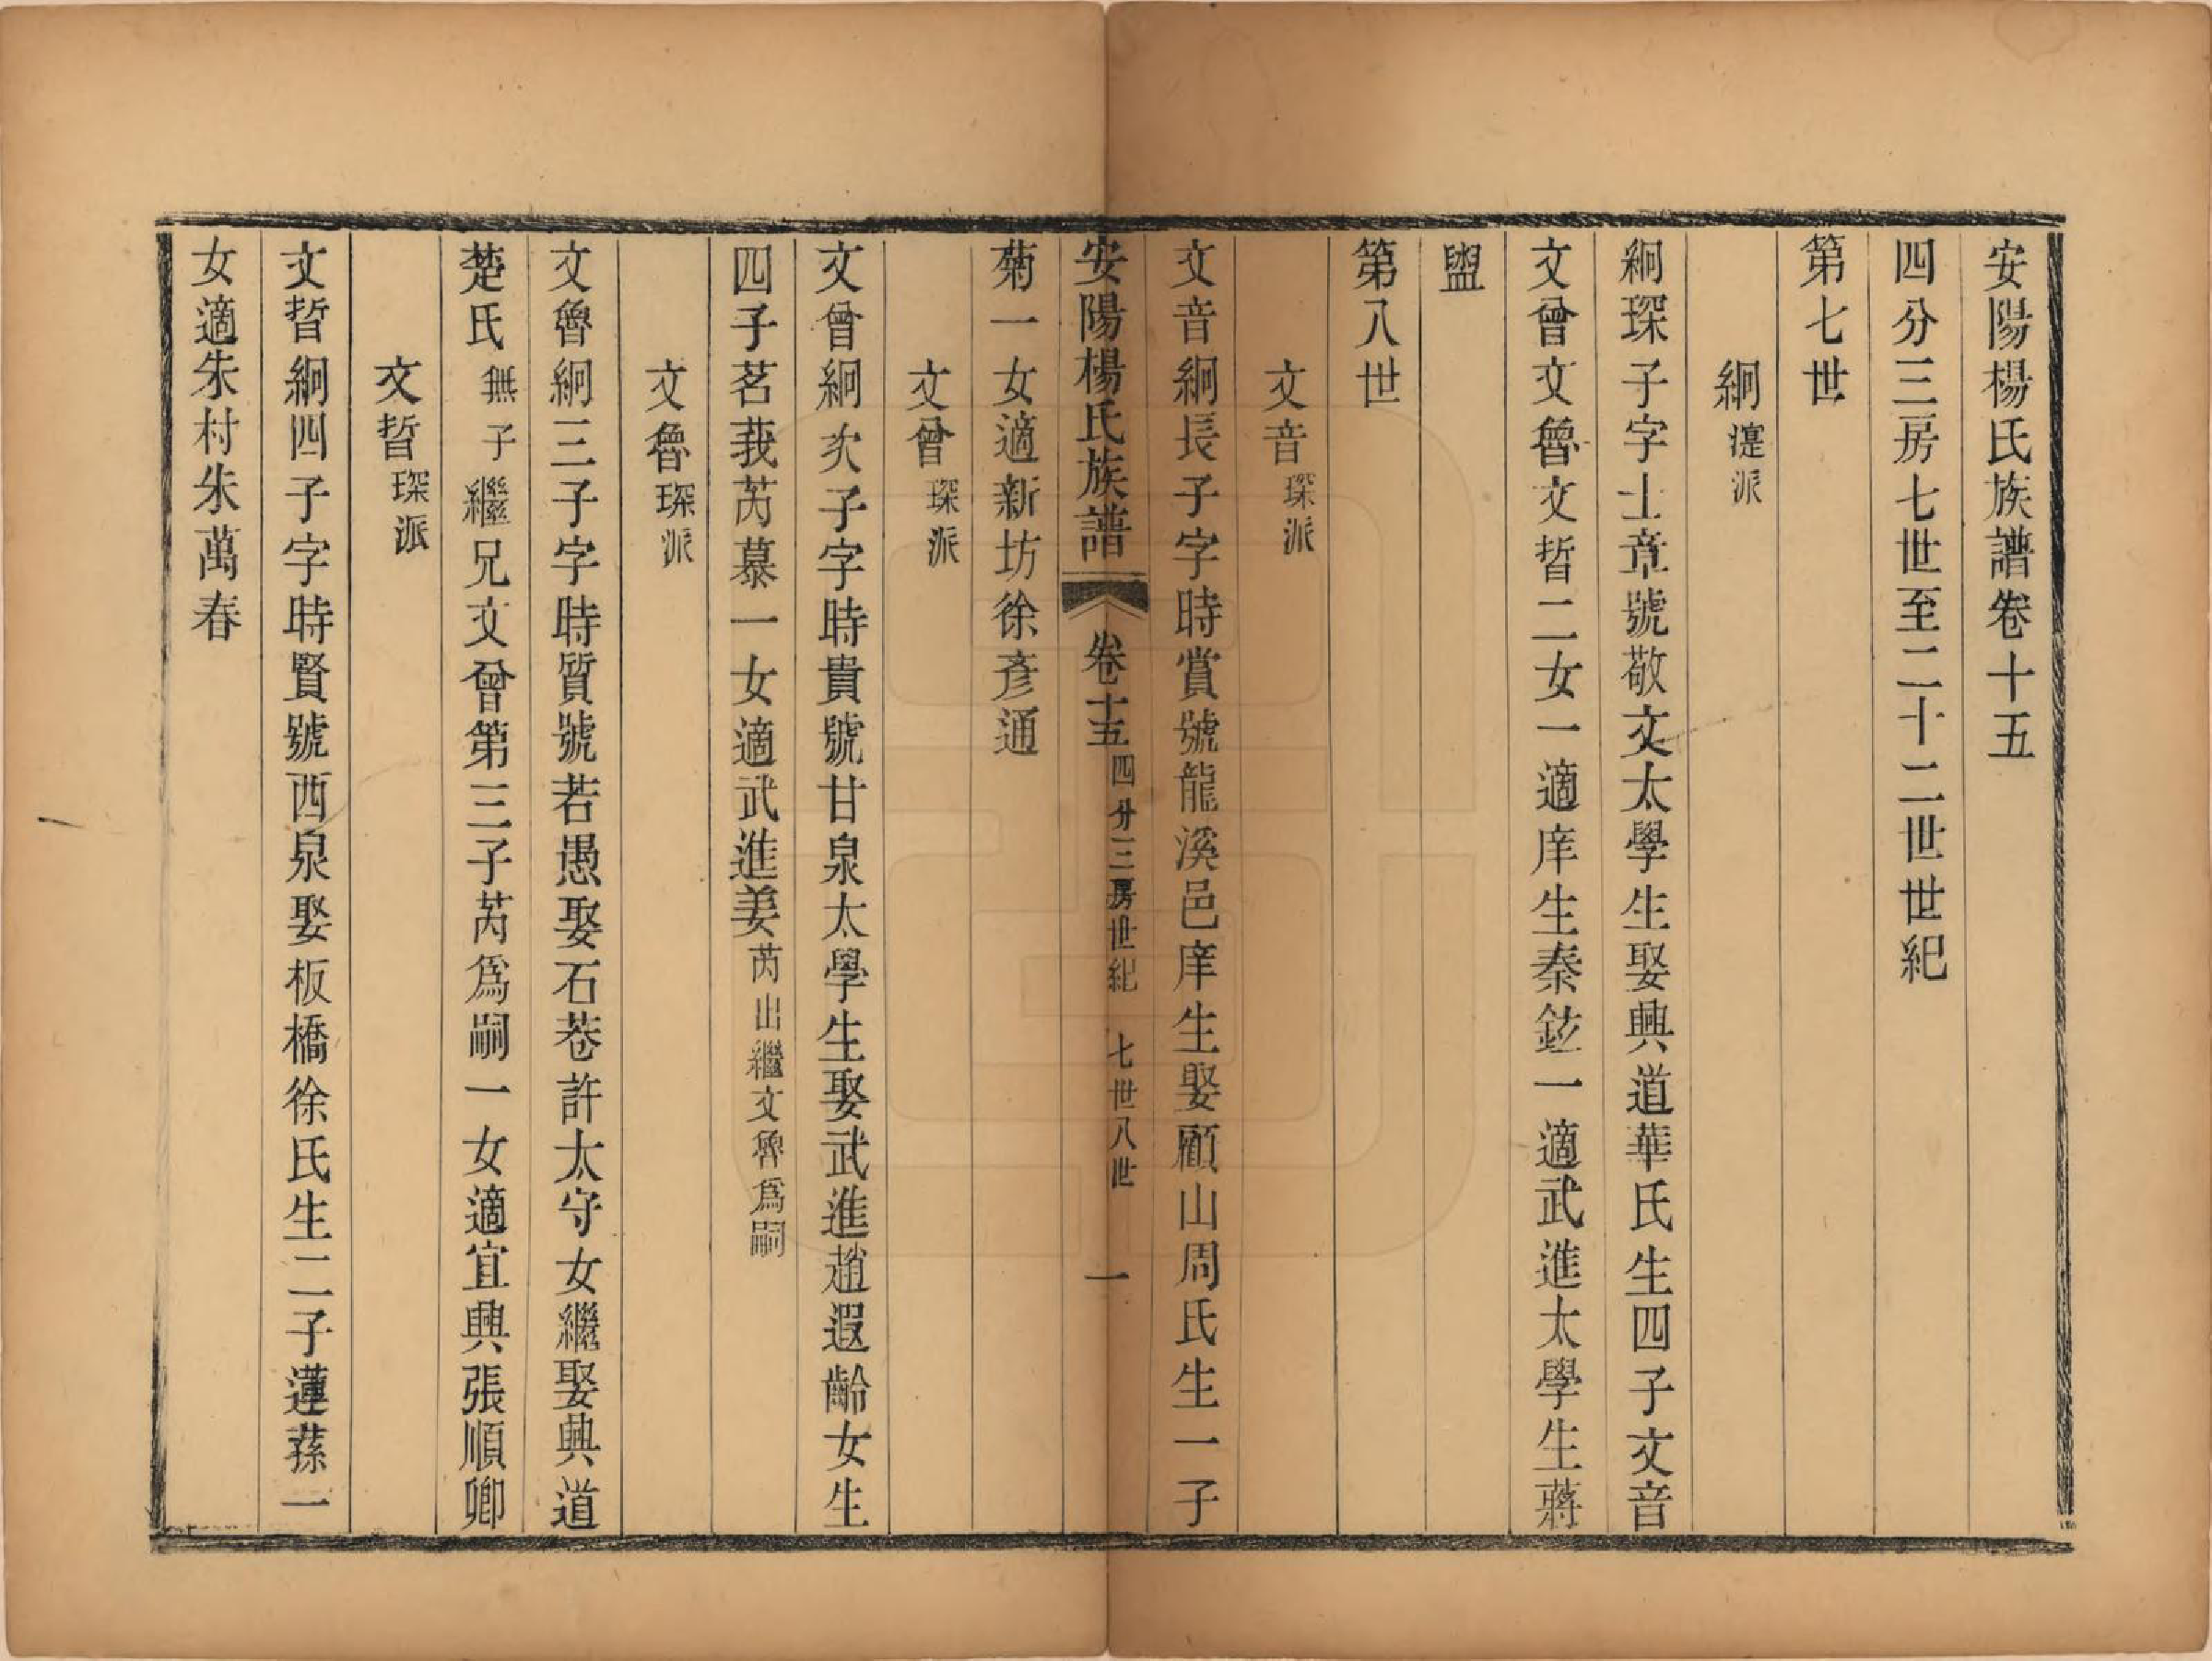 安陽楊氏族譜卷十五
四分三房七世至二十二世世紀
第七世
絅 寔派
絅琛子字士章號敬文太學生娶興道華氏生四子文音
文曾文魯文晢二女一適庠生秦鈜一適武進太學生蔣
盥
第八世
文音 琛派
文音絅長子字時賞號龍溪邑庠生娶顧山周氏生一子
安陽楊氏族譜 卷十五 四分三房世紀 七世八世 一
菊一女適新坊徐彥通
文曾 琛派
文曾絅次子字時貴號甘泉太學生娶武進趙遐齡女生
四子茗莪芮慕一女適武進姜 芮出繼文魯爲嗣
文魯 琛派
文魯絅三子字時質號若愚娶石巷許太守女繼娶興道
楚氏 無子 繼兄文曾第三子芮爲嗣一女適宜興張順卿
文晢 琛派
文晢絅四子字時賢號西泉娶板橋徐氏生二子蓮蓀一
女適朱村朱萬春